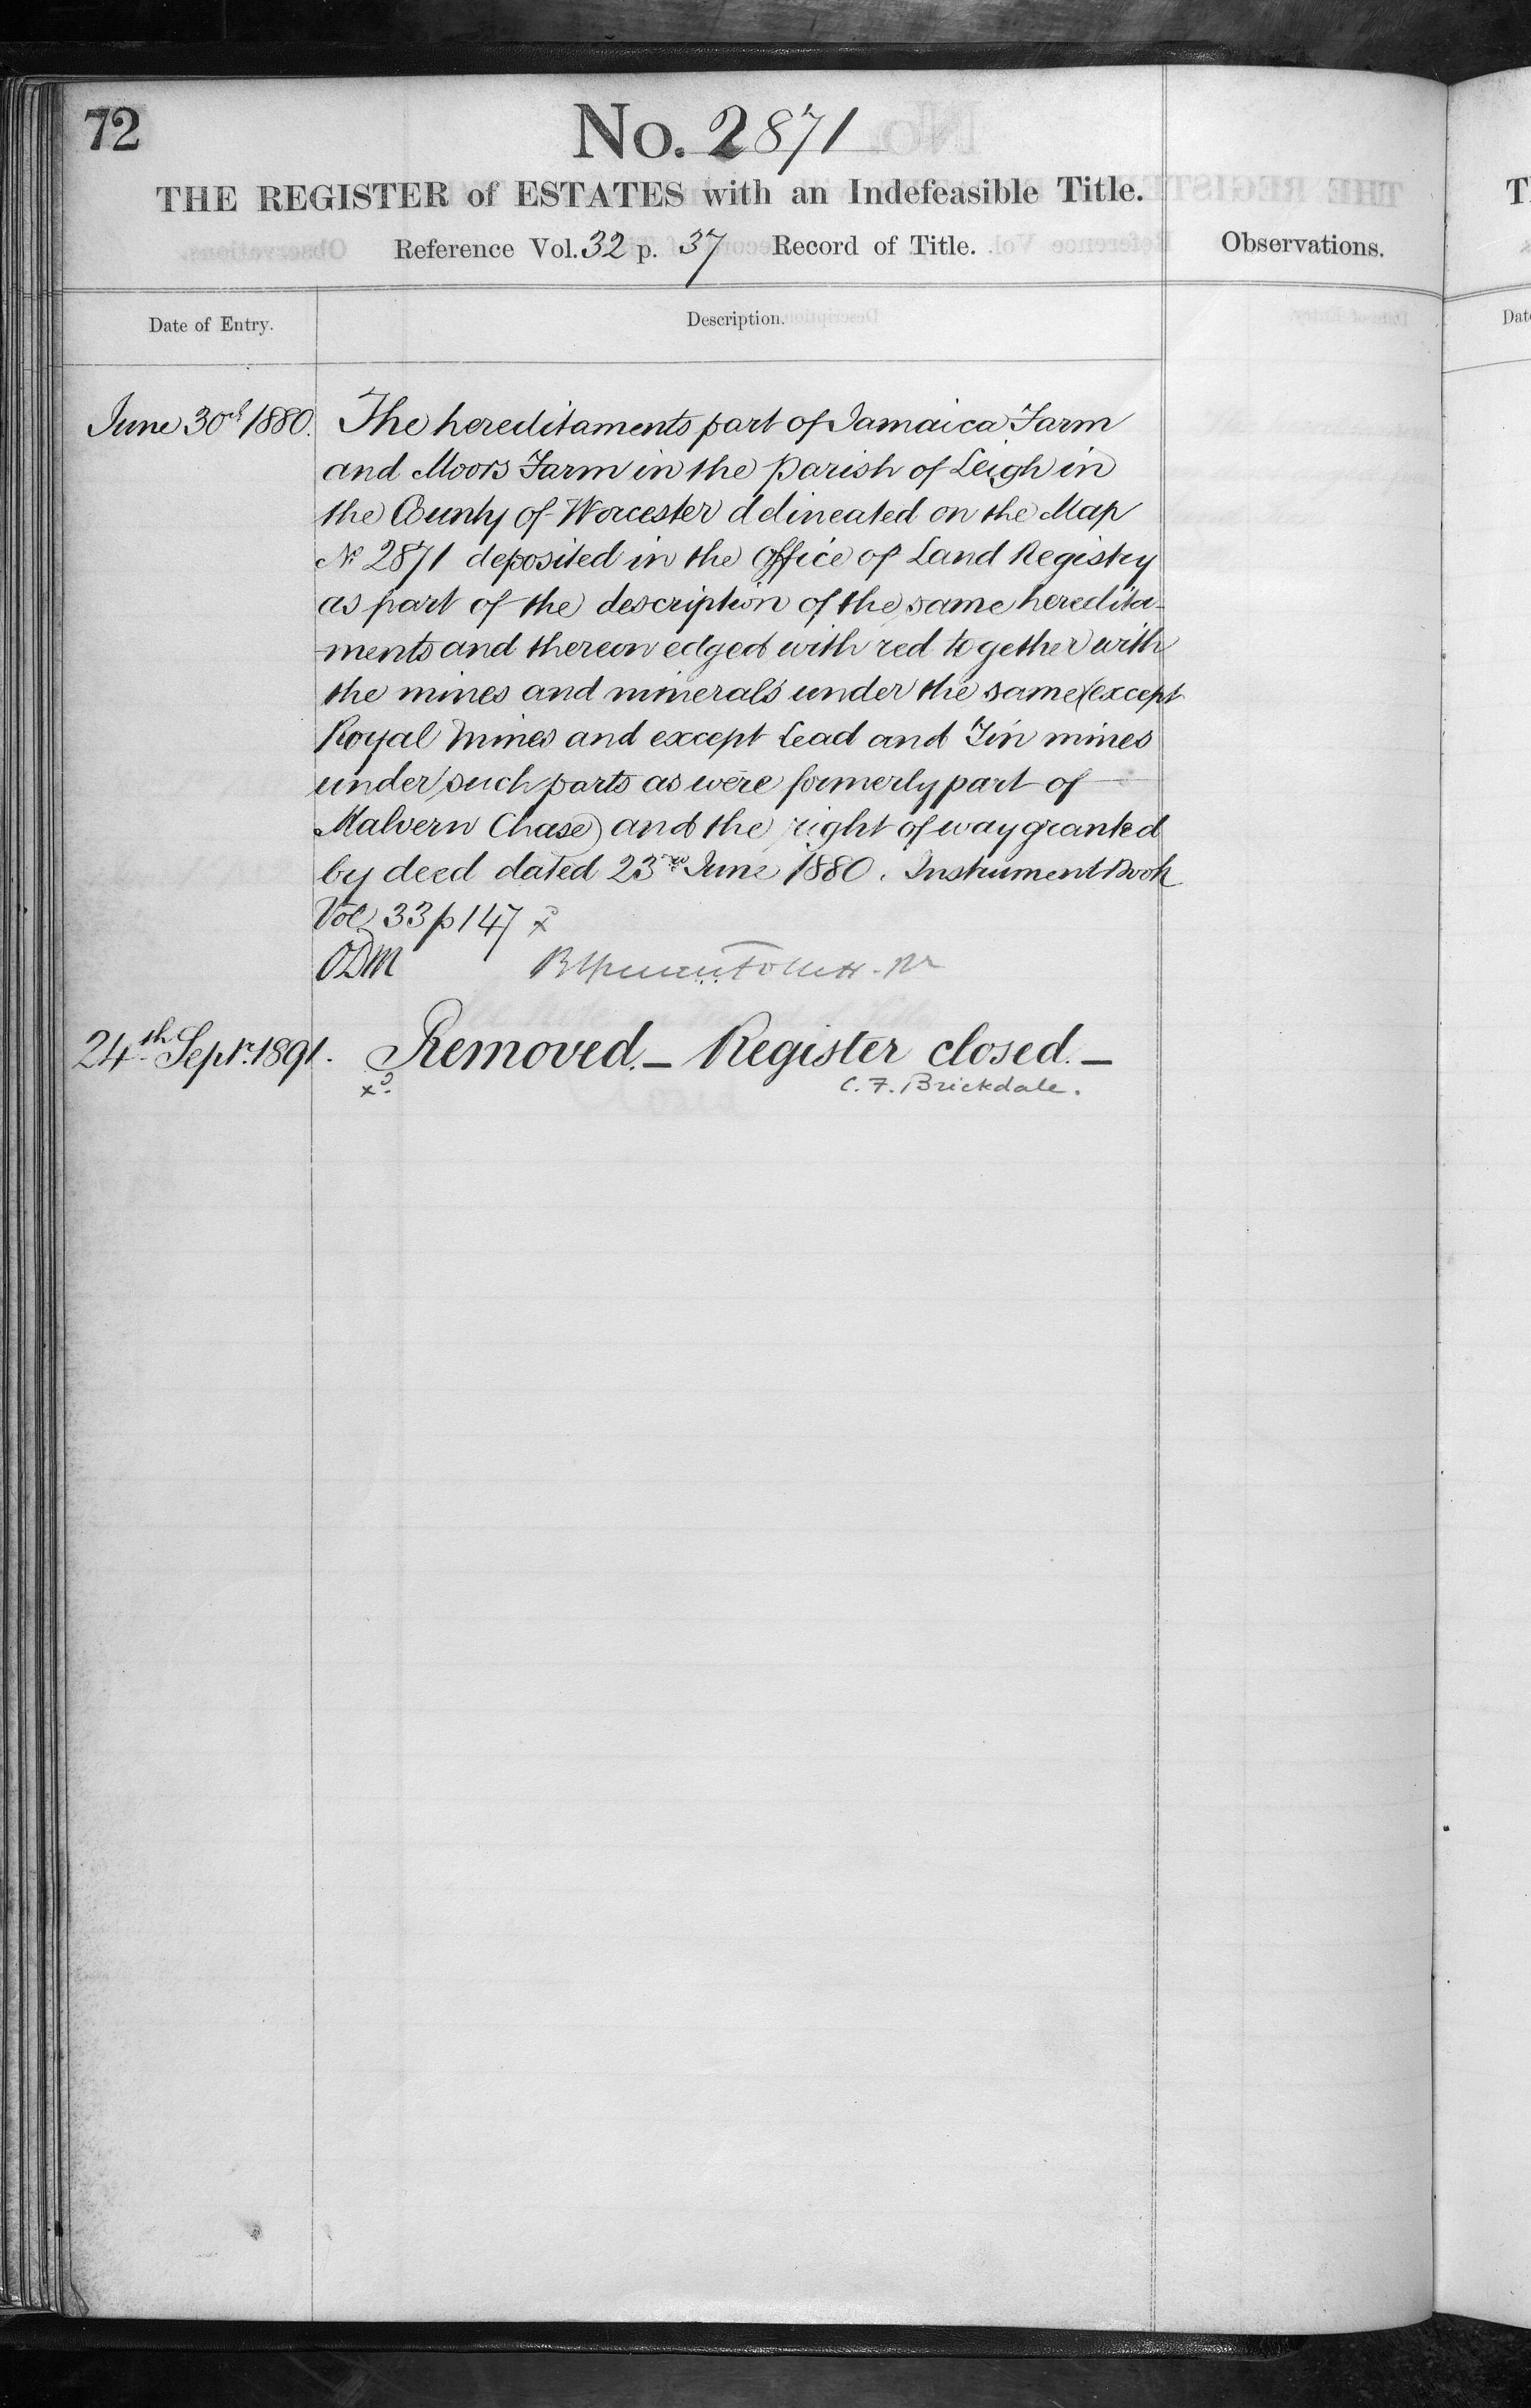 72
No. 2871
THE REGISTER of ESTATES with an Indefeasible Title.
Reference Vol. 32 p. 37 Record of Title.
Observations.
Date of Entry.
Description.
June 30th 1880.
The hereditaments part of Jamaica Farm
and Moors Farm in the Parish of Leigh in
the County of Worcester delineated on the Map
No 2871 deposited in the office of Land Registry
as part of the description of the same heredita-
ments and thereon edged with red together with
the mines and minerals under the same (except
Royal Mines and except Lead and Tin mines
under such parts as were formerly part of
Malvern Chase) and the right of way granted
by deed dated 23rd June 1880. Instrument Book
Vol 33 p 147 x
ODM
24th Septr. 1891. Removed. — Register closed. —
C. F. Brickdale.